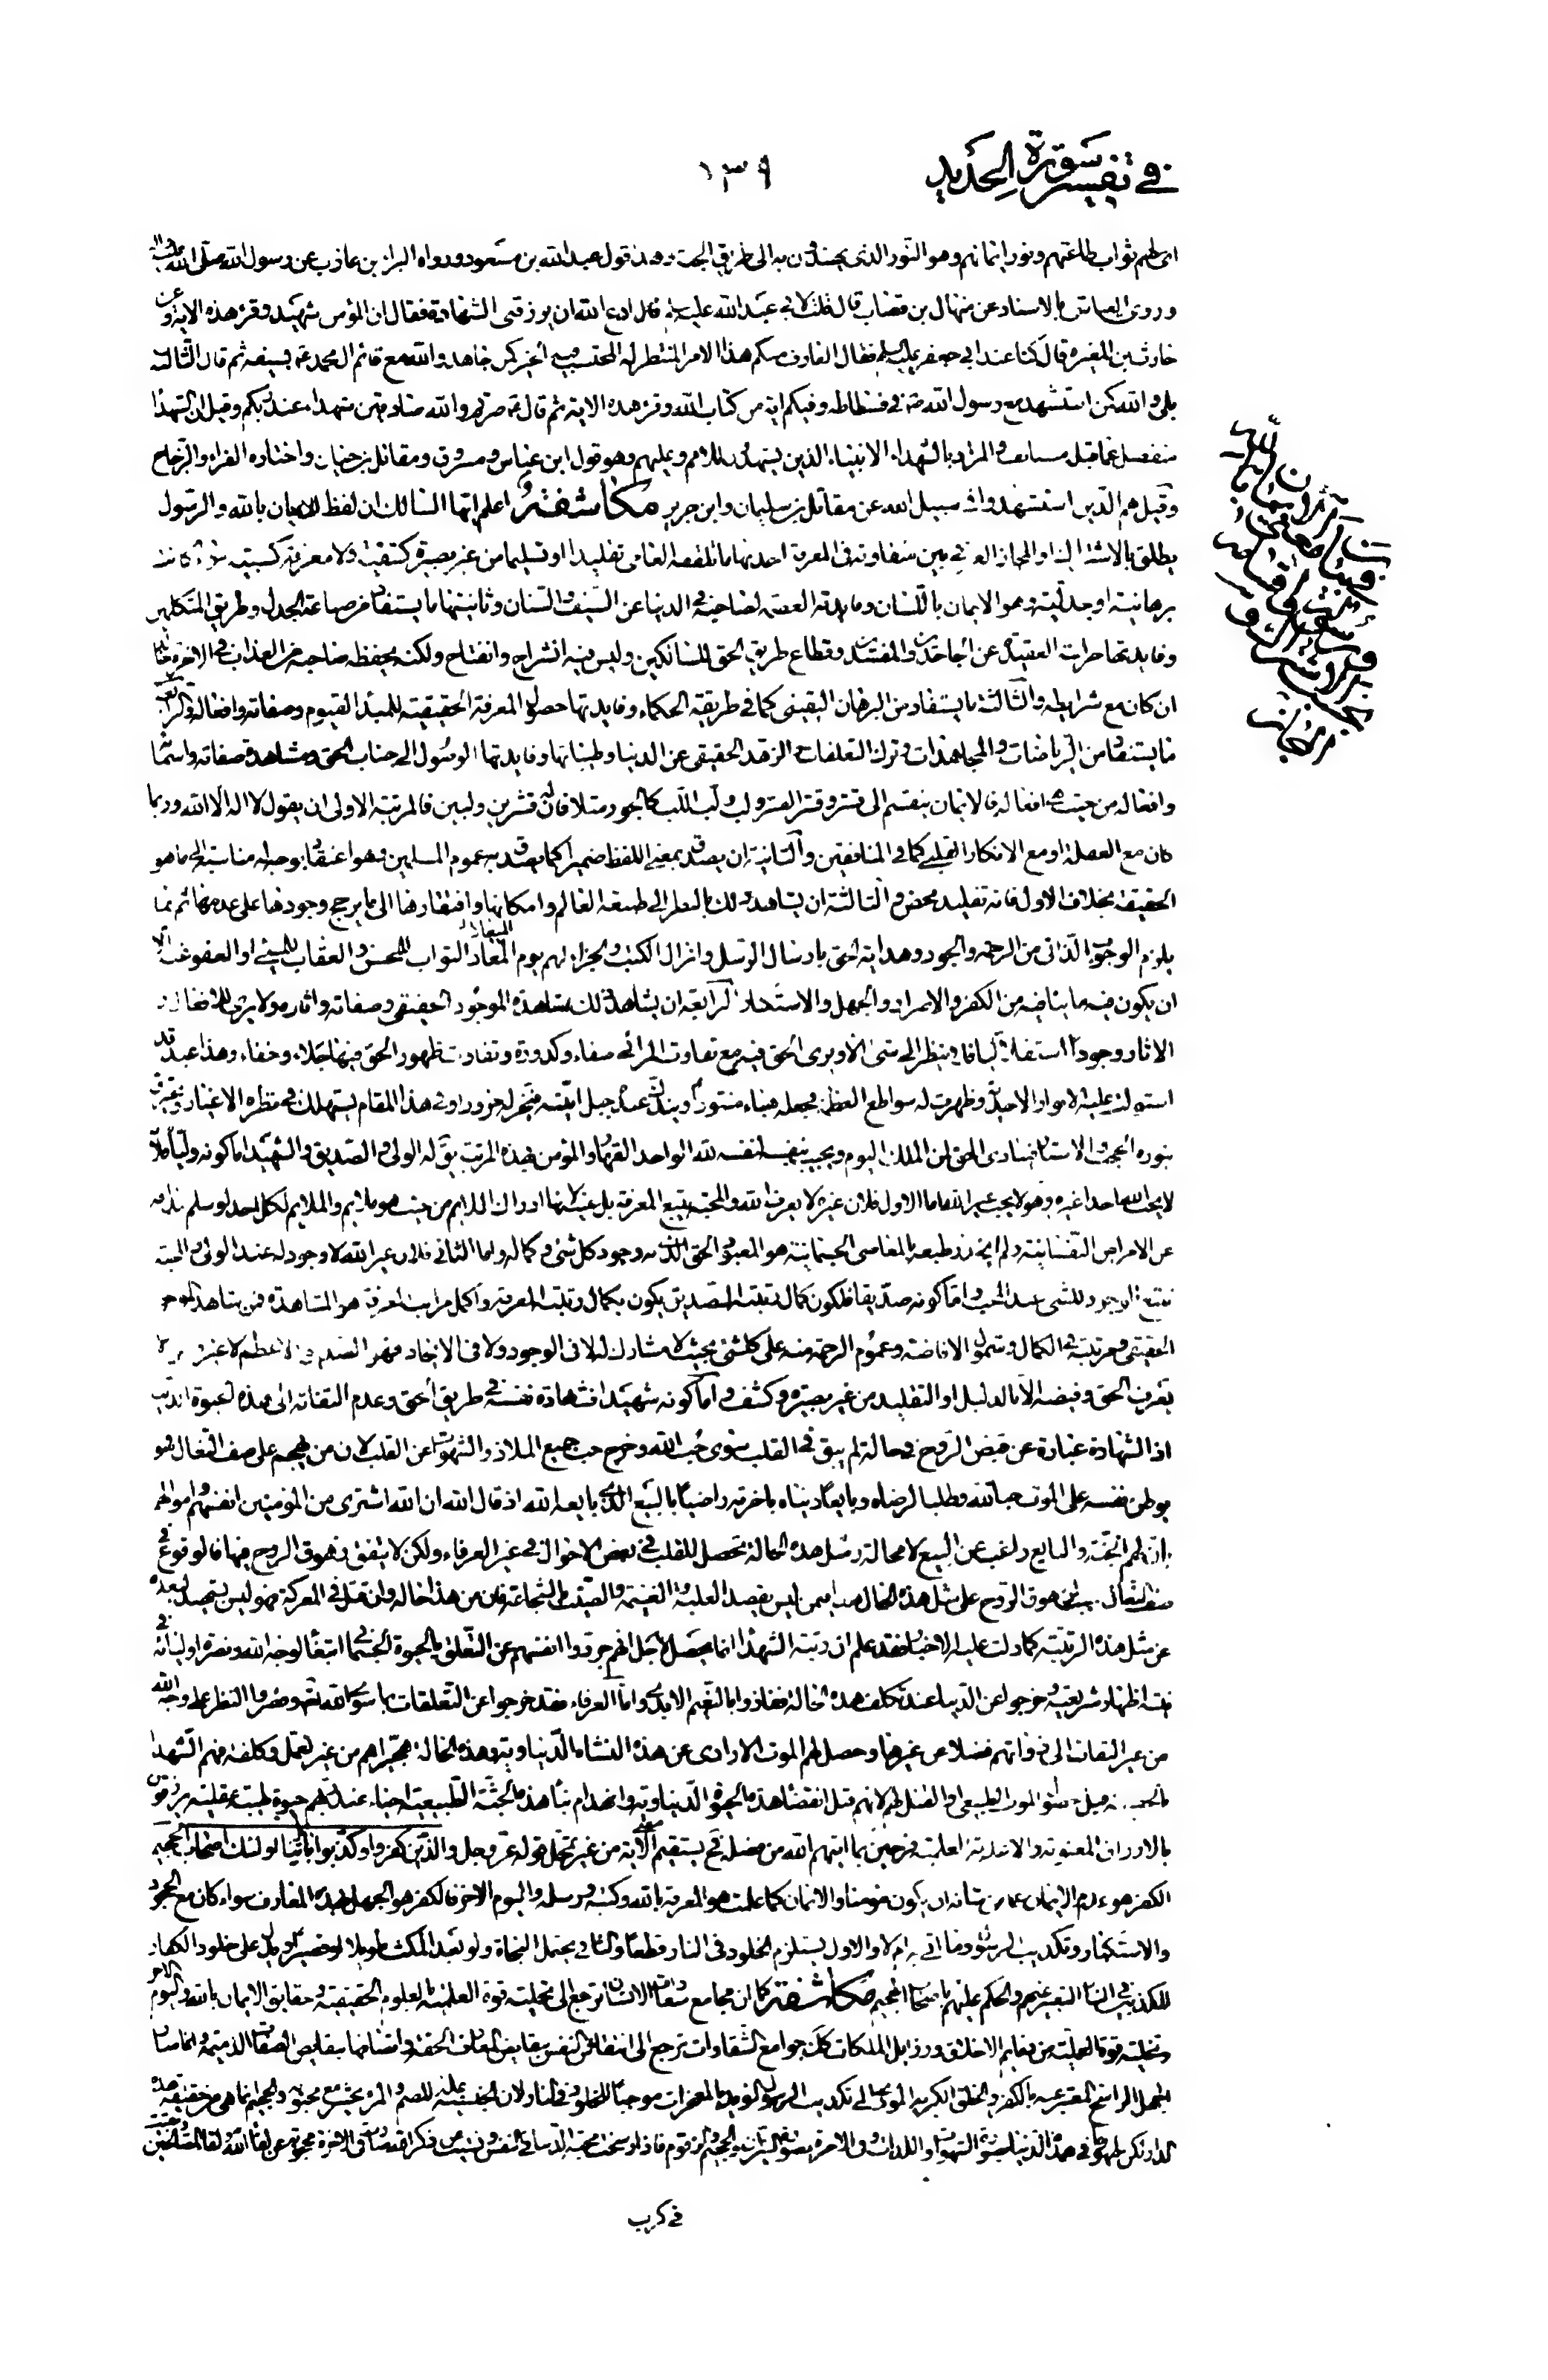 في تفسير سورة الحديد
١٣٩
اى لهم ثواب طاعتهم ونور ايمانهم وهو النور الذى يهتدون به الى طريق الجنة وهذا قول عبد الله بن مسعود ورواه البراء بن عازب عن رسول الله صلى الله عليه واله
وروى العياشى بالاسناد عن منهال بن قصاب قال قلت لابى عبد الله عليه ادع الله ان يرزقنى الشهادة فقال ان المؤمن شهيد وقرء هذه الاية وعن
حارث بن المغيره قال كنا عند ابى جعفر عليه السلم فقال العارف منكم هذا الامر المنتظر له المحتسب فيه الخير كمن جاهد والله مع قائم ال محمد بسيفه ثم قال الثالثة
بلى والله كمن استشهد مع رسول الله في فسطاطه وفيكم اية من كتاب الله وقرء هذه الاية ثم قال صرتم والله صادقين شهداء عند ربكم وقيل ان الشهداء
منفصل عما قبله مستانف والمراد بالشهداء الانبياء الذين يشهدون للامم وعليهم وهو قول ابن عباس ومسروق ومقاتل بن حيان واختاره الفراء والزجاج
وقيل هم الذين استشهدوا فى سبيل الله عن مقاتل بن سليمان وابن جرير مكاشفة اعلم ايها السالك ان لفظ الايمان بالله والرسول
يطلق بالاشتراك او المجاز العرفى بين متفاوتة فى المعرفة احدیها ما تلقفه العامى تقليدا او تسليما من غير بصيرة كشفية ولا معرفة كسبية سواء كانت
برهانية او جدلية وهو الايمان باللسان وفايدته العصمة لصاحبه فى الدنيا عن السيف والسنان وثانيتها ما يستفاد من صناعة الجدل وطريق المتكلمين
وفايدتها حراسة العقيدة عن الجاحدين والمفسدين وقطاع طريق الحق للسالكين وليس فيه انشراح وانفتاح ولكنه يحفظ صاحبه من العذاب فى الاخرة
ان كان مع شرايطه والثالثة ما يستفاد من البرهان اليقينى كما فى طريقة الحكماء وفايدتها حصول المعرفة الحقيقية للمبدء القيوم وصفاته وافعاله والرابعة
ما يستفاد من الرياضات والمجاهدات وترك التعلقات والزهد الحقيقى عن الدنيا وطيباتها وفايدتها الوصول الى جناب الحق ومشاهدة صفاته واسمائه
وافعاله من حيث هى افعاله فالايمان ينقسم الى قشر وقشر القشر ولب ولب اللب كالجوز مثلا فان له قشرين ولبين فالمرتبة الاولى ان يقول لا اله الا الله وربما
كان مع الغفلة او مع الانكار القلبى كما فى المنافقين والثانية ان يصدق بمعنى اللفظ ضميرا كما يصدق به عموم المسلمين وهو اعتقاد بوجه له مناسبة الى ما هو
الحقيقة بخلاف الاول فانه تقليد محض والثالثة ان يشاهد ذلك بالنظر الى طبيعة العالم وامكانها وافتقارها الى ما يرجح وجودها على عدمها ثم بما
يلزم الوجوب الذاتى من الرحمة والجود وهدايته الخلق بارسال الرسل وانزال الكتب والجزاء لهم يوم المعاد الثواب للمحسن والعقاب للمسىء او العفو عنه الا
ان يكون فيه ما ينافيه من الكفر والاصرار والجهل والاستكبار الرابعة ان يشاهد ذلك بمشاهدة الموجود الحقيقى وصفاته واثاره ولا يرى للافعال و
الاثار وجودا استقلاليا فلا ينظر الى شىء الا ويرى الحق فيه مع تفاوت المرائى صفاء وكدورة وتفاوت ظهور الحق فيها جلاء وخفاء وهذا عبد قد
استولت عليه الانوار الاحدية وظهرت له سواطع العظمة فجعله هباء منثورا ويندك عنده جبل انيته فيخر لله خرورا وفى هذا المقام يستهلك فى نظره الاغيار ويحترق
بنوره الحجب والاستار فينادى الحق لمن الملك اليوم ويجيب بنفسه لنفسه لله الواحد القهار والمؤمن بهذه المرتبة يق له الولى والصديق والشهيد اما كونه وليا فلانه
لا يحب الله احدا غيره وهو لا يحب غير الله اما الاول فلان غيره لا يعرف الله والمحبة يتبع المعرفة بل عينها لانها ادراك الملايم من حيث هو ملايم والملايم لكل احد لو سلم ذاته
عن الامراض النفسانية ولم يخدر طبعه بالمعاصى الجسمانية هو المعبود الحق الذى به وجود كل شىء وكماله واما الثانى فلان غير الله لا وجود له عند الولى والمحبة
يتبع الوجود للشىء عند المحب واما كونه صديقا فلكون كمال رتبة الصديق يكون بكمال رتبة المعرفة واكمل مراتب المعرفة هو المشاهدة فمن يشاهد الموجود
الحقيقى ومرتبته فى الكمال وشمول الافاضة وعموم الرحمة منه على كل شىء بحيث لا مشارك له لا فى الوجود ولا فى الايجاد فهو الصديق الاعظم لا غيره
يعرف الحق وفيضه الا بالدليل او التقليد من غير بصيرة وكشف واما كونه شهيدا فشهادة نفسه فى طريق الحق وعدم التفاته الى هذه الحيوة الدنية
اذ الشهادة عبارة عن قبض الروح فى حالة لم يبق فى القلب سوى حب الله وخرج حب جميع الملاذ والشهوات عن القلب لان من يهجم على صف القتال فهو
يوطن نفسه على الموت حبا لله وطلبا لرضاه وبايعا دنياه باخرته راضيا بالبيع الذى بايع الله اذ قال الله ان الله اشترى من المؤمنين انفسهم واموالهم
بان لهم الجنة والبايع راغب عن المبيع لا محالة ومثل هذه الحالة تحصل للقلب فى بعض الاحوال فى غير العرفاء ولكن لا يتفق زهوق الروح فيها فالوقوع فى
صف القتال سبب زهوق الروح على مثل هذه الحال هذا فيمن ليس يقصد الغلبة والغنيمة والصيت بالشجاعة فان من هذا حاله وان قتل فى المعركة فهو ليس بشهيد لبعده
عن مثل هذه الرتبة كما دلت عليه الاخبار فقد علم ان رتبة الشهداء انما يحصل لاجل انهم جردوا انفسهم عن التعلق بالحيوة الجسمانية ابتغاء لوجه الله ونصرة اوليائه
اظهار شريعته وخرجوا عن الدنيا عند تكلف هذه الحالة ففازوا بالنعيم الابدى واما العرفاء فقد خرجوا عن التعلقات بما سوى الله وقصروا النظر على وجه الله
من غير التفات الى ذواتهم فضلا عن غيرها وحصل لهم الموت الارادى عن هذه النشأة الدنياوية وهذه الحالة من غير تعمل وكلفة فهم الشهداء
قبل حصول الموت الطبيعى او القتل لهم لانهم قبل انقضاء هذه الحيوة الدنياوية وانهدام بناء هذه الجثة الطبيعية احياء عند ربهم حيوة طيبة عقلية يرزقون
بالارزاق المعنوية والاغذية العلمية فرحين بما اتيهم الله من فضله فح يستقيم معنى الاية من غير تمحل قوله عز وجل والذين كفروا وكذبوا باياتنا اولئك اصحاب الجحيم
الكفر هو عدم الايمان عما من شانه ان يكون مؤمنا والايمان كما علمت هو المعرفة بالله وكتبه ورسله واليوم الاخر فالكفر هو الجهل بهذه المعارف سواء كان مع الجحود
والاستكبار وتكذيب الرسول وما اتى به ام لا والاول يستلزم الخلود فى النار قطعا والثانى يحتمل النجاة ولو بعد المكث طويلا او قصيرا ويدل على خلود الكفار
المكذبين فى النار التعبير عنهم والحكم عليهم باصحاب الجحيم مكاشفة كما ان مجامع سعادات الانسان ترجع الى تحلية قوته العلمية بالعلوم الحقيقية وحقايق الايمان بالله واليوم الاخر
وتخلية قوته العملية من ذمايم الاخلاق ورذايل الملكات كك جوامع الشقاوات ترجع الى انتقاش النفس بنقايض المعارف الحقة واتصافها بنقايص الصفات الذميمة وانما صار
الجهل الراسخ المعبر عنه بالكفر والخلق الكريه المؤدى الى تكذيب الرسول المؤيد بالمعجزات موجبا للخلود فى النار لان الجنسية علة للضم والمرء يحشر مع محبوبه والجحيم انما هى من حقيقة هذه
الدار ولكن ظهورها فى هذه الدنيا بصورة الشهوات واللذات وفى الاخرة بصورة النيران والجحيم والزقوم فاذا رسخت محبة الدنيا فى النفس ونسيت من ذكر الله صارت فى الاخرة محجوبة عن لقاء الله
فى كرب